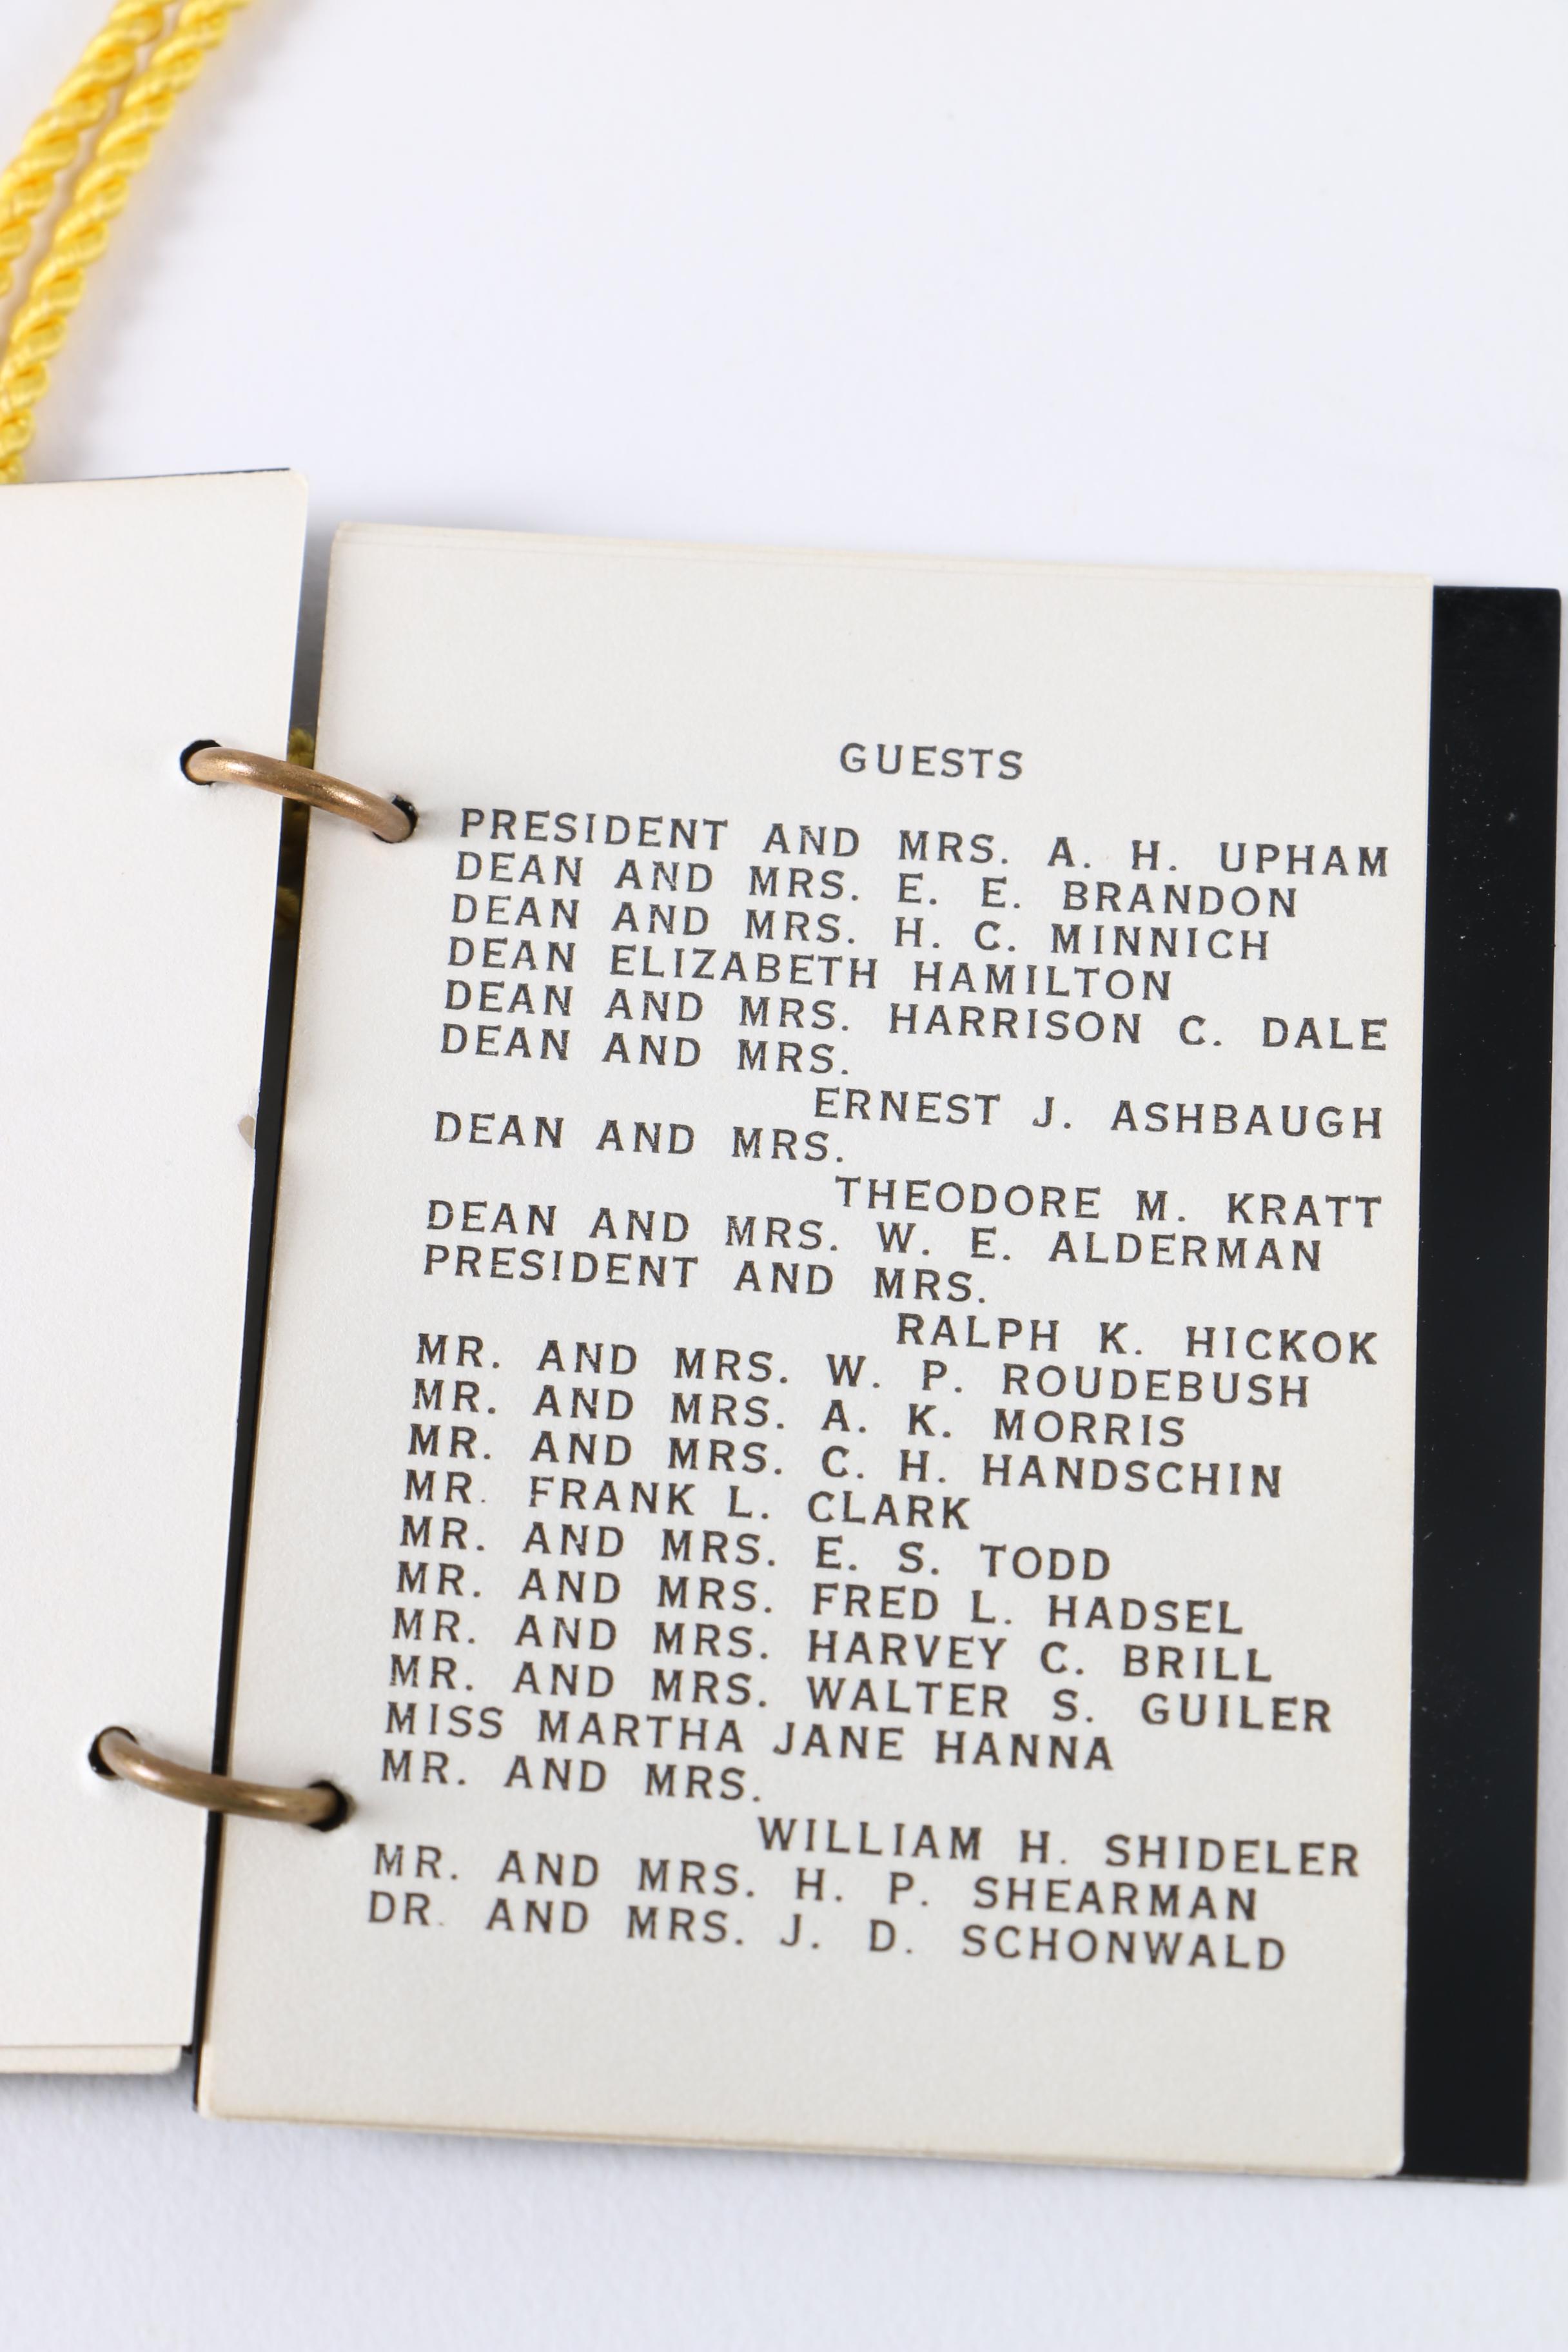 GUESTS
PRESIDENT AND MRS. A. H. UPHAM
DEAN AND MRS. E. E. BRANDON
DEAN AND MRS. H. C. MINNICH
DEAN ELIZABETH HAMILTON
DEAN AND MRS. HARRISON C. DALE
DEAN AND MRS.
ERNEST J. ASHBAUGH
DEAN AND MRS.
THEODORE M. KRATT
DEAN AND MRS. W. E. ALDERMAN
PRESIDENT AND MRS.
RALPH K. HICKOK
MR. AND MRS. W. P. ROUDEBUSH
MR. AND MRS. A. K. MORRIS
MR. AND MRS. C. H. HANDSCHIN
MR. FRANK L. CLARK
MR. AND MRS. E. S. TODD
MR. AND MRS. FRED L. HADSEL
MR. AND MRS. HARVEY C. BRILL
MR. AND MRS. WALTER S. GUILER
MISS MARTHA JANE HANNA
MR. AND MRS.
WILLIAM H. SHIDELER
MR. AND MRS. H. P. SHEARMAN
DR. AND MRS. J. D. SCHONWALD